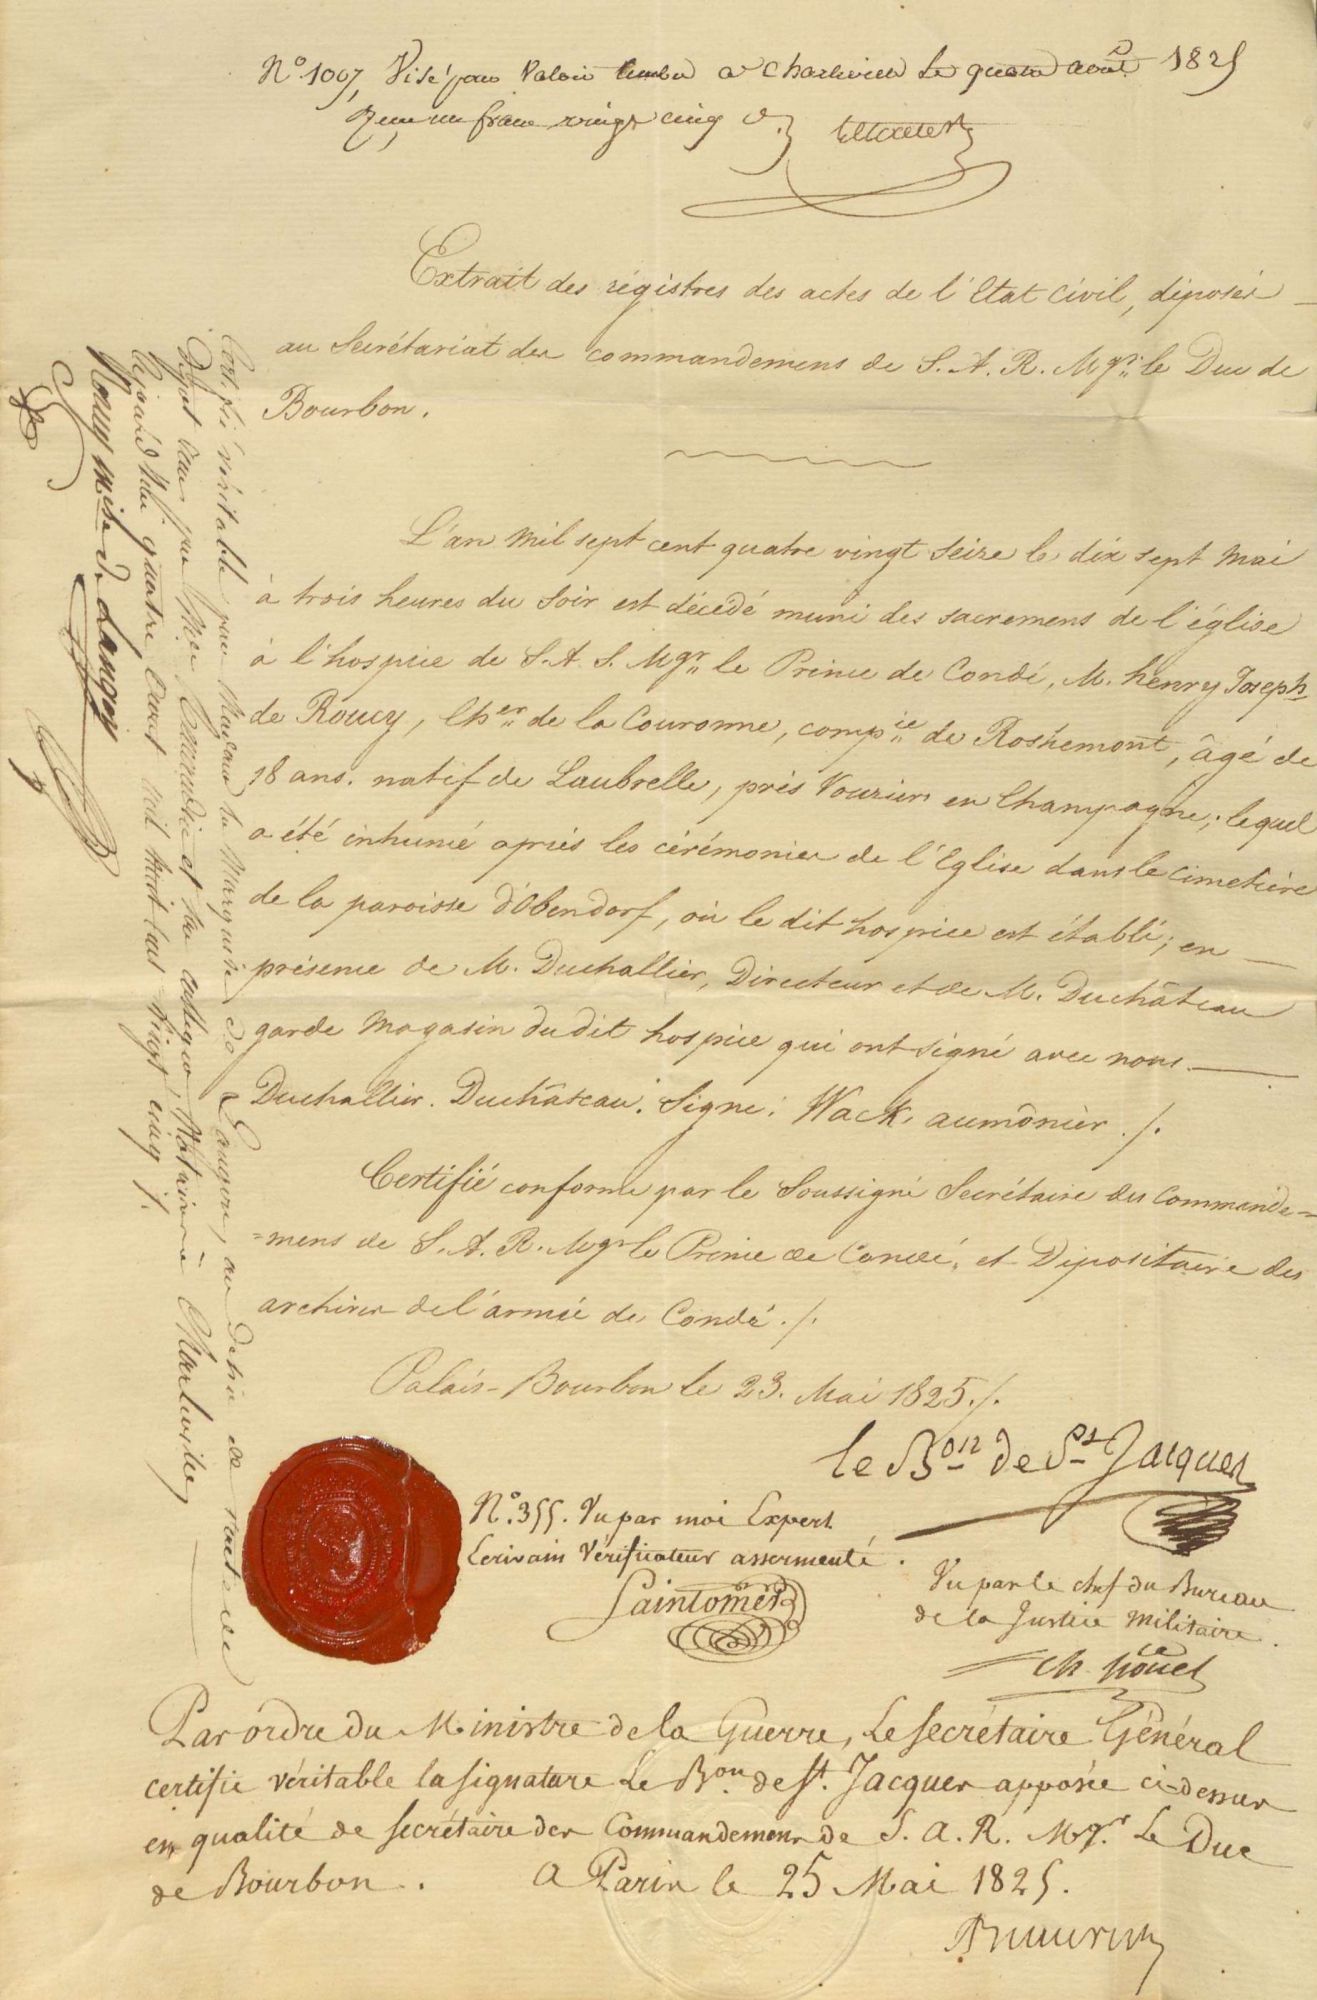 N.º 1007, Visé pour Valoir timbre à Charleville le quatre août 1825
Reçu un franc vingt cinq c.
Extrait des régistres des actes de l'Etat Civil, déposés
au Secrétariat des commandemens de S. A. R. Mgr. le Duc de
Bourbon.
L'an mil sept cent quatre vingt seize le dix sept Mai
à trois heures du Soir est décédé muni des sacremens de l'église
à l'hospice de S. A. S. Mgr. le Prince de Condé, M. henry Joseph
de Roucy, Cher. de la Couronne, compie. de Roshemont, âgé de
18 ans. natif de Laubrelle, près Vouzier en Champagne; lequel
a été inhumé après les cérémonies de l'Eglise dans le cimetière
de la paroisse d'Obendorf, où le dit hospice est établi; en
présence de M. Duchallier, Directeur et de M. Duchâteau
garde magasin dudit hospice qui ont signé avec nous.
Duchallier. Duchâteau. Signé: Wack, aumônier ./.
Certifié conforme par le Soussigné Secrétaire des Commande=
=mens de S. A. R. Mgr le Prince de Condé, et Dépositaire des
archives de l'armée de Condé ./.
Palais-Bourbon le 23. Mai 1825 ./.
le Bon de St Jacques
N.º 355. Vu par moi Expert
Ecrivain Vérificateur assermenté.
Saintomer
Vu par le chef du Bureau
de la Justice Militaire.
Par ordre du Ministre de la Guerre, Le Secrétaire Général
certifie véritable la signature Le Bon. de St. Jacques apposée ci-dessus
en qualité de secrétaire des Commandemens de S. A. R. Mgr. Le Duc
de Bourbon. A Paris le 25 Mai 1825.
Certifié véritable par Madame la Marquise de Langon, au désir de l'acte de
Dépôt reçu par Mer et son collègue, Notaires à Charleville,
cejourd'hui quatre août mil huit cent vingt cinq ./.
Roucy mise de Langon